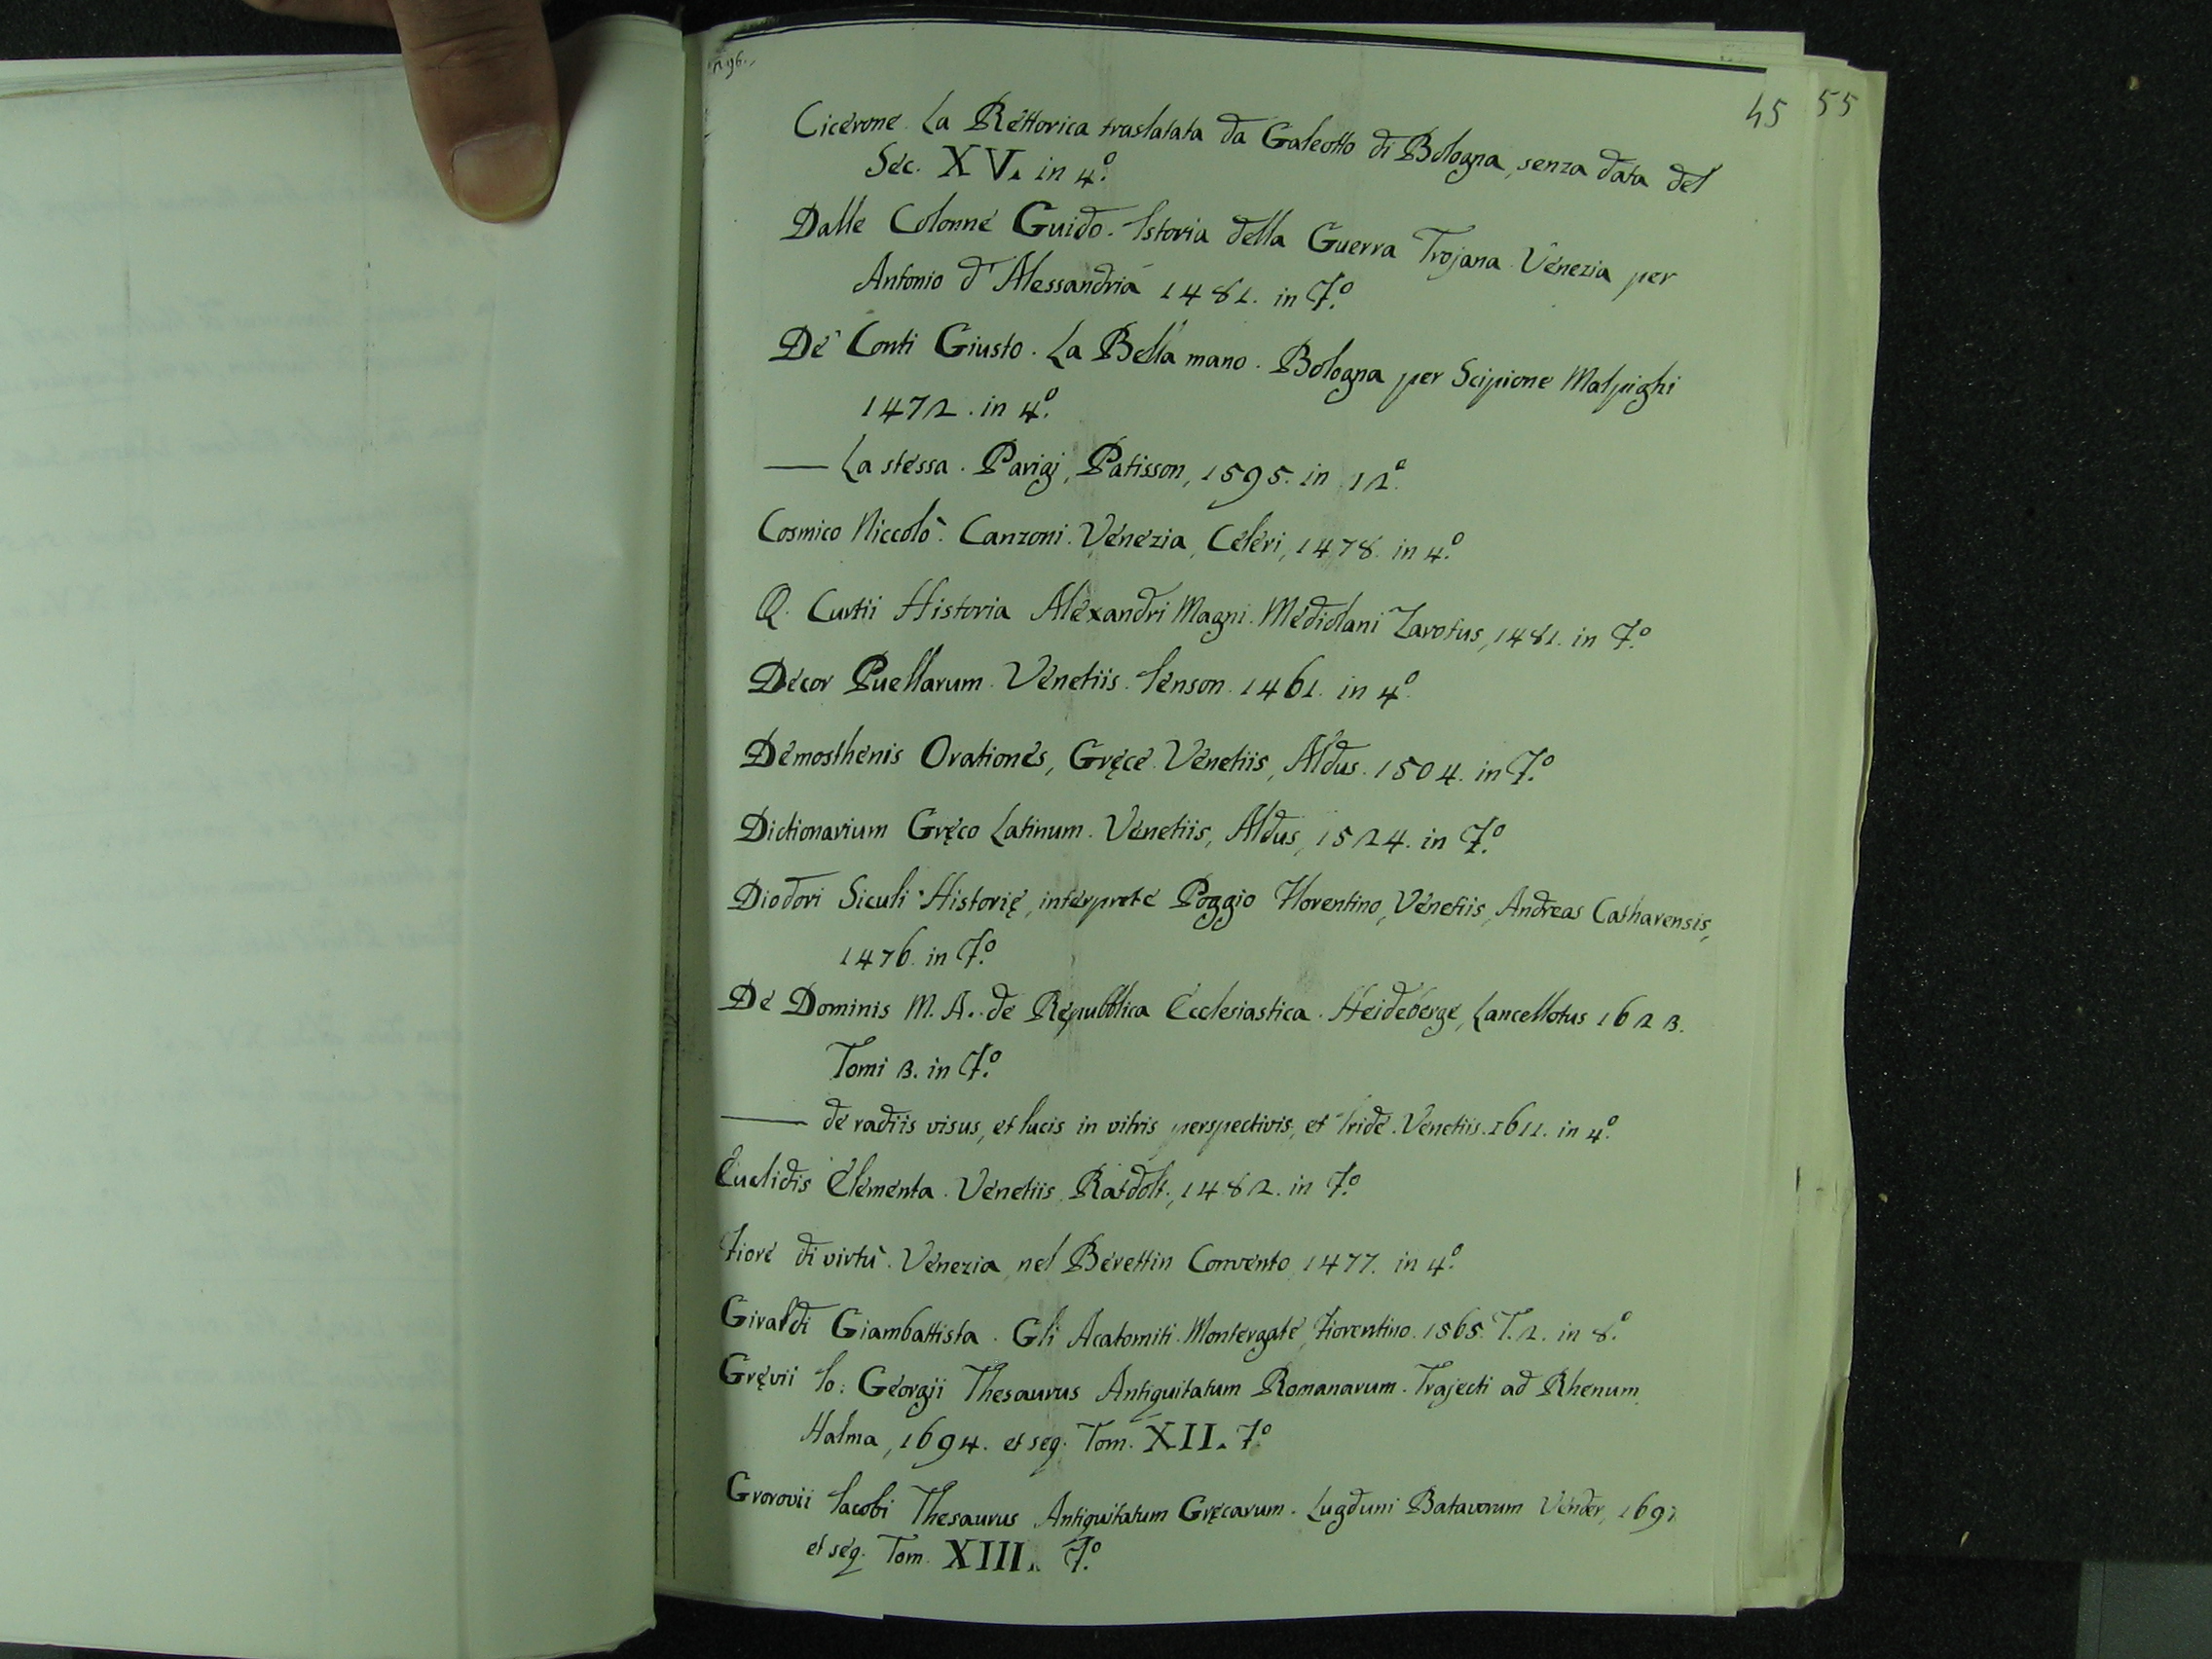 45 55
Cicerone. La Rettorica traslatata da Galeotto di Bologna, senza data del
Sec. XV. in 4.º
Dalle Colonne Guido. Istoria della Guerra Trojana. Venezia per
Antonio d'Alessandria 1481. in F.º
De' Conti Giusto. La Bella mano. Bologna per Scipione Malpighi
1472. in 4.º
— La stessa. Parigi, Patisson, 1595. in 12.º
Cosmico Niccolò. Canzoni. Venezia, Celeri, 1478. in 4.º
Q. Curtii Historia Alexandri Magni. Mediolani Zarotus, 1481. in F.º
Decor Puellarum. Venetiis. Ienson. 1461. in 4.º
Demosthenis Orationes, Gręce. Venetiis, Aldus. 1504. in F.º
Dictionarium Gręco Latinum. Venetiis, Aldus, 1524. in F.º
Diodori Siculi Historię, interprete Poggio Florentino, Venetiis, Andreas Catharensis,
1476. in F.º
De Dominis M. A. de Repubblica Ecclesiastica. Heidebergę, Lancellotus 1623.
Tomi 3. in F.º
— de radiis visus, et lucis in vitris perspectivis, et Iride. Venetiis. 1611. in 4.º
Euclidis Elementa. Venetiis, Ratdolt., 1482. in F.º
Fiore di virtù. Venezia, nel Berettin Convento, 1477. in 4.º
Giraldi Giambattista. Gli Acatomiti. Montergale, Fiorentino. 1565. T. 2. in 8.º
Gręvii Io: Georgii Thesaurus Antiquitatum Romanarum. Trajecti ad Rhenum.
Halma, 1694. et seq. Tom. XII. F.º
Grorovii Iacobi Thesaurus Antiquitatum Gręcarum. Lugduni Batavorum Vender, 1697.
et seq. Tom. XIII. F.º